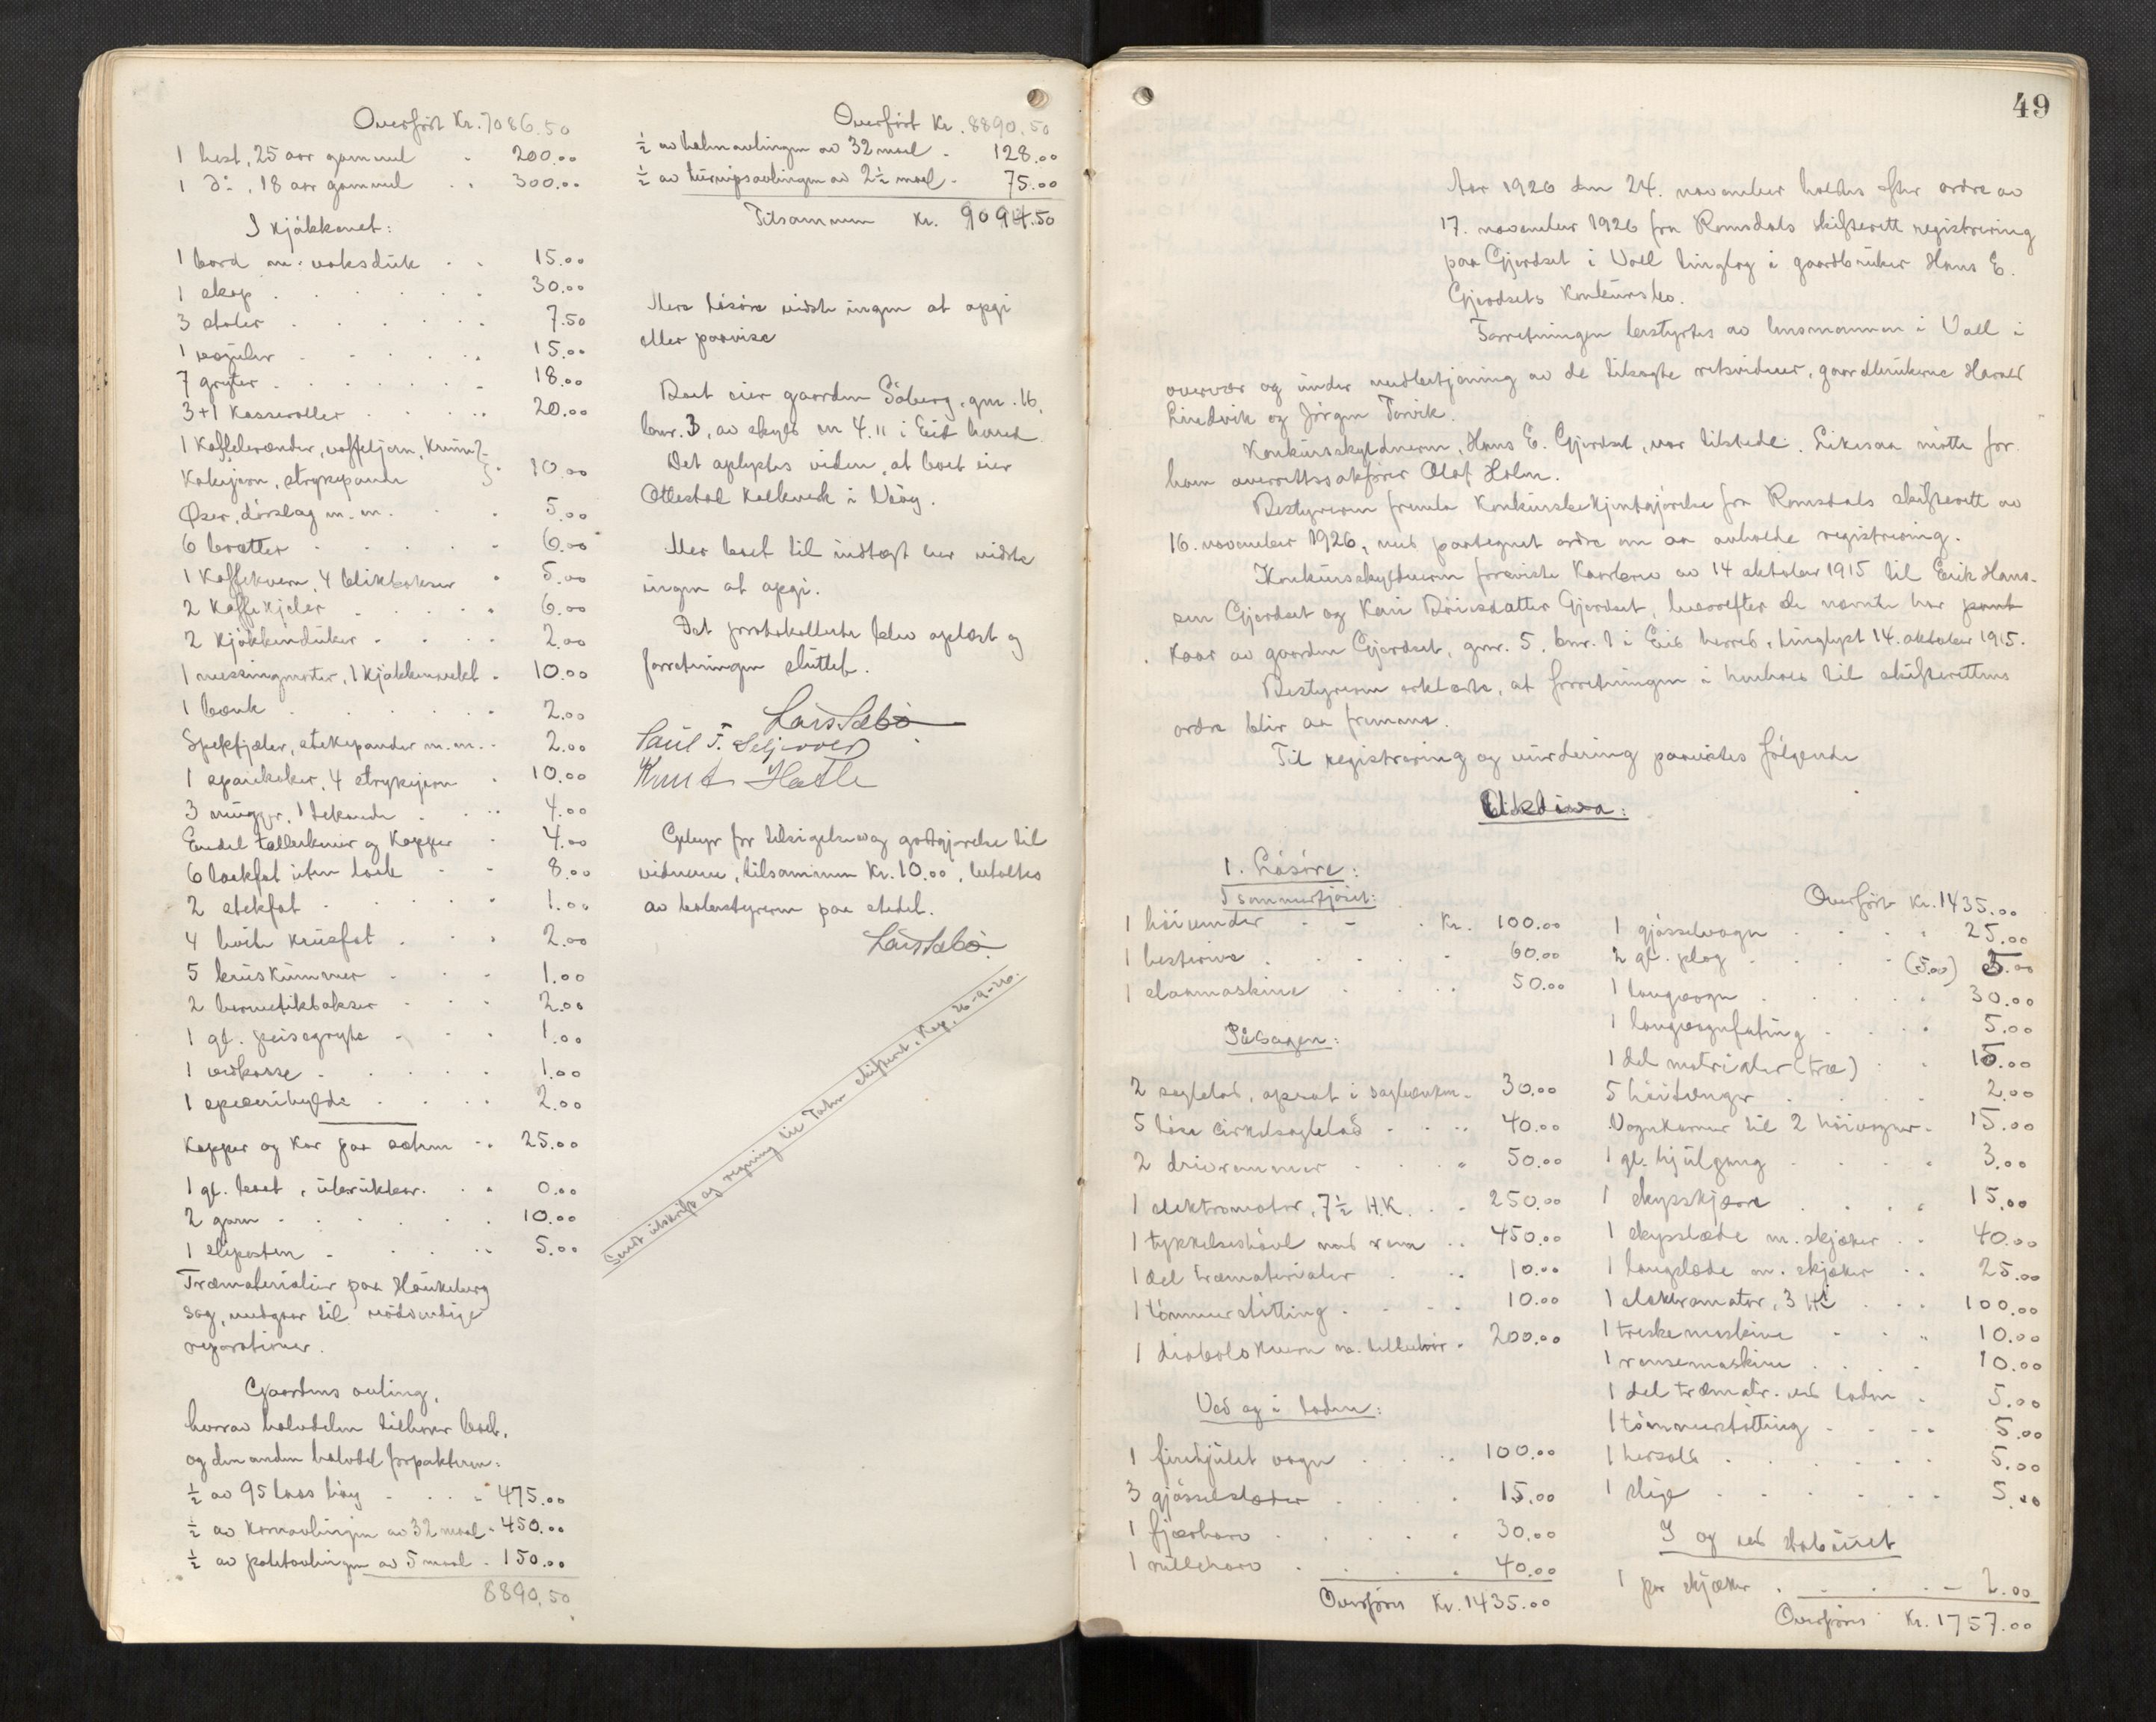 Overført Kr. 7086.50
1 hest, 25 aar gammel - 200.00
1 do, 18 aar gammel . . 300.00
I kjøkkenet:
1 bord m. voksduk . . 15.00
1 skap . . . . . . 30.00
3 stoler . . . . . . 7.50
1 . . . . . 15.00
7 gryter . . . . . . . 18.00
3+1 Kasseroller . . . . . 20.00
1 Kaffebrænder, vaffeljern, Krum-
Kakejern, stryepande 10.00
Øser, dørslag m.m. . . . 5.00
6 bratter . . . . . 6.00
1 Kaffekvern, 4 blikbokser . 5.00
2 Kaffekjeler . . . . . 6.00
2 kjøkkenduker . . . . 2.00
1 messingmorter, 1 kjøkkenvekt . 10.00
1 bænk . . . . . . 2.00
Spekfjæler, stekepander m.m. . . 2.00
1 , 4 strykejern . 10.00
3 mugger, 1 tekande . . . . 4.00
Endel tallerkener og Kopper . 4.00
6 lokfat uten lock . . 8.00
2 stekfat . . . . . 1.00
4 hvite krusfat . . . 2.00
5 kruskummer . . . 1.00
2 hermetikbokser . . . 2.00
1 gl. peisegryte . . . 1.00
1 vedkasse . . . . . 1.00
1 specerihylde . . . . 2.00
Kopper og Kar paa sætren . . 25.00
1 gl. baat, ubrukbar. . . 0.00
2 garn . . . . . . . 10.00
1 slipesten . . . . . 5.00
Træmaterialier paa Haukeberg
sag, medgaar til nødvendige
reparationer.
Gaardens avling,
hvorav halvdelen tilhører boet,
og den anden halvdel forpakteren:
½ av 95 lass høy . . . . 475.00
½ av Kornavlingen av 32 maal . 450.00
½ av potetavlingen av 5 maal . 150.00
8890.50
Overført Kr. 8890.50
½ av halmavlingen av 32 maal . 128.00
½ av turnipsavlingen av 2½ maal . 75.00
Tilsammen Kr. 9094.50
Mere løsøre vidste ingen at opgi
eller paavise
Boet eier gaarden Søberg, gnr. 16,
bnr. 3, av skyld m 4.11 i Eid herred
Det oplystes viden, at boet eier
Ottestad Kalkverk i Veøy.
Mer boet til indtægt her vidste
ingen at opgi.
Det protokollerte blev oplæst og
forretningen sluttet.
Lars Sæbø
Paul T. Seljevold
Knut Hatle
Gebyr for tilsigelse og godtgjørelse til
vidnerne, tilsammen Kr. 10.00, betaltes
av bobestyreren paa stedet.
Lars Sæbø.
Sendt utskrift og regning til skifterett, 26-9-26.
49
Aar 1926 den 24. november holdtes efter ordre av
17. november 1926 fra Romsdals skifterett registrering
paa Gjerdset i Voll tinglag i gaardbruker Hans E.
Gjerdsets Konkursbo.
Forretningen bestyrtes av lensmannen i Voll i
overvær og under medbetjening av de tilsagte retsvidner, gaardbrukerne Harald
Lindvik og Jørgen Torvik.
Konkursskyldneren, Hans E. Gjerdset, var tilstede. Likesaa møtte for
ham overrettssakfører Olaf Holm.
Bestyreren fremla Konkursbekjentgjørelse fra Romsdals skifterett av
16. november 1926, med paategnet ordre om aa avholde registrering.
Konkursskyldneren foreviste Kaarbrev av 14 oktober 1915 til Erik Hans-
sen Gjerdset og Kari Gjerdset, hvorefter de nævnte har pant
Kaar av gaarden Gjerdset, gnr. 5, bnr. 1 i Eid herred, tinglyst 14. oktober 1915.
Bestyreren erklærte, at forretningen i henhold til skifterettens
ordre blir aa fremme.
Til registrering og vurdering paavistes følgende
Aktiva:
1. Løsøre:
I sommerfjøset:
1 høivender . - . Kr. 100.00
1 hesterive . . . . . 60.00
1 slaamaskine . . . . 50.00
På sagen:
2 sagblad, opsat i sagbænken . 30.00
5 løse Cirkelsagblad . . . . 40.00
2 drivremmer . . . . 50.00
1 elektromotor, 7½ H.K. . . 250.00
1 tykkelseshøvl med rem . . 450.00
1 del træmaterialer . . . 10.00
1 tømmerstøtting . . . . 10.00
1 diabolo Kvern m. tilbehør . 200.00
Ved og i laden:
1 firehjulet vogn . . . 100.00
3 gjødselslæder . . . . 15.00
1 fjærharv . . . . . 30.00
1 rulleharv . . . . . 40.00
Overføres Kr. 1435.00
Overført Kr. 1435.00
1 gjødselvogn . . . . 25.00
2 gl. plog . . . . (5.00) 5.00
1 langvogn . . . . . 30.00
1 langvogn . . . 5.00
1 del materialer (træ) . . 10.00
5 høistænger . . . . . 2.00
Vognkarmer til 2 høivogner . 15.00
1 gl. hjulgang . . . . 3.00
1 skysskjærre . . . . 15.00
1 skysslæde m. skjæker . . 40.00
1 langslæde m. skjæker . . 25.00
1 elektromotor, 3 HK . . . 100.00
1 treskemaskine . . . 10.00
1 rensemaskine . . . . 10.00
1 del træmatr. ved laden . 5.00
1 tømmerstøtting . . . . 5.00
1 . . . . . . 5.00
1 stige . . . . . . 5.00
I og ved stabburet
1 par skjæker . . . . - 2.00
Overføres Kr. 1757.00